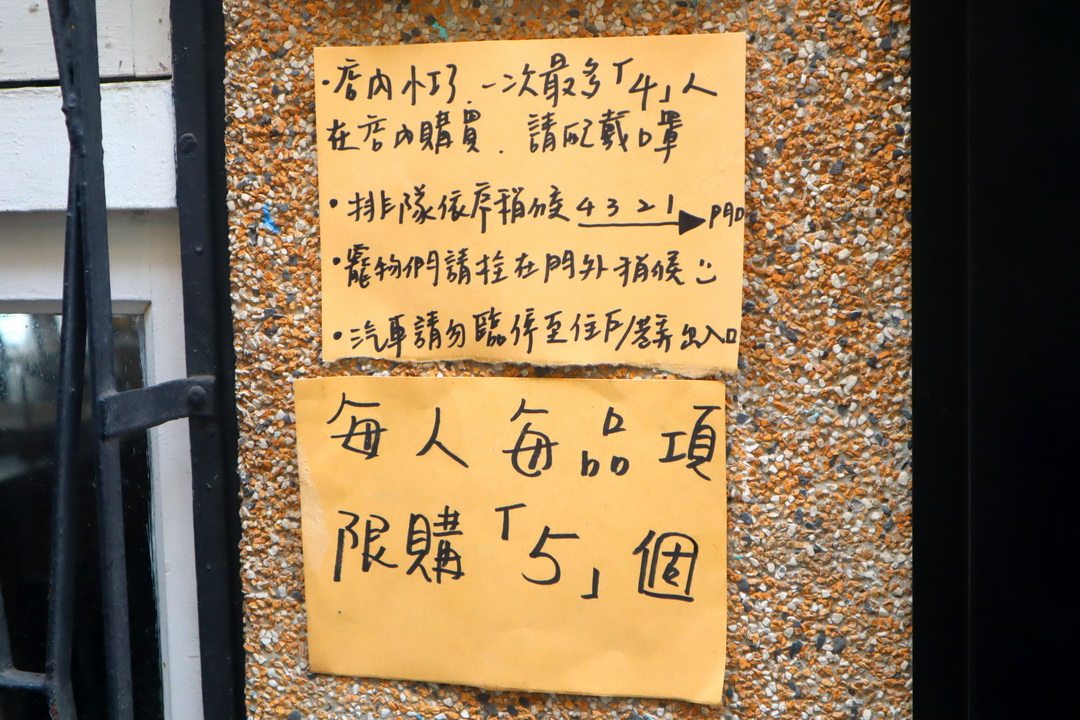 ·店內小巧,一次最多「4」人
在店內購買.請配戴口罩
·排隊依序稍候 4 3 2 1 → 門口
·寵物們請拴在門外稍候:)
·汽車請勿臨停至住戶/巷弄出入口
每人每品項
限購「5」個